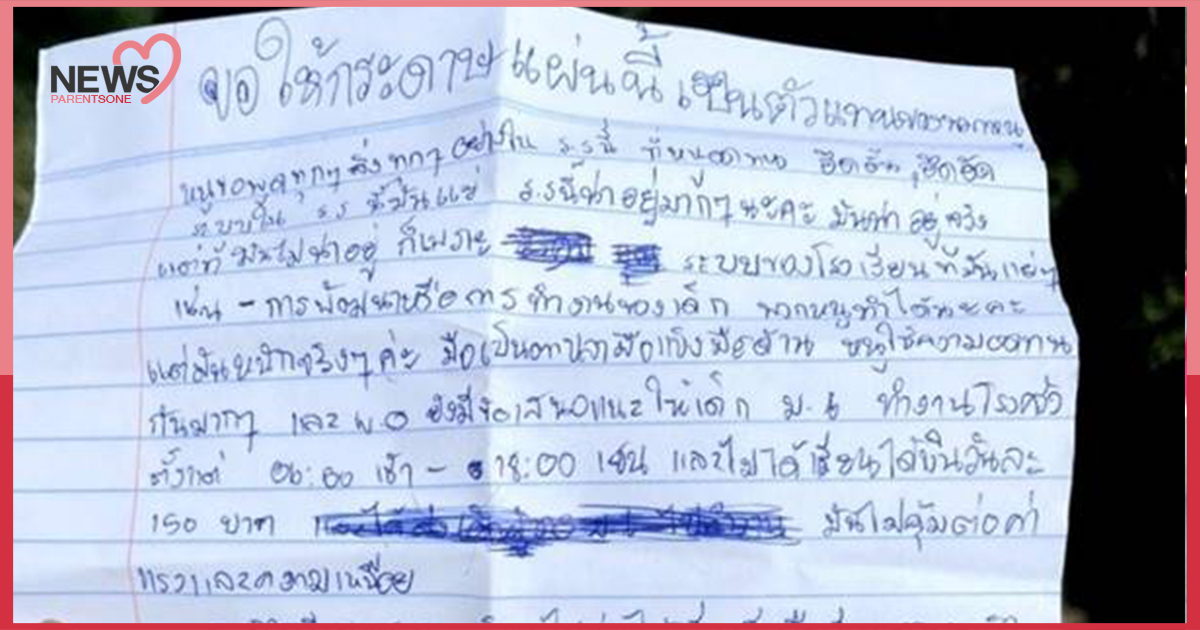 NEWS
PARENTSONE
ขอให้กระดาษแผ่นนี้เป็นตัวแทนของพวกหนู
หนูขอพูดทุกๆสิ่งทุกๆอย่างใน ร.ร นี้ ที่หนูอดทน อึดอัด
ระบบใน ร.ร นี้มันแย่ ร.รนี้น่าอยู่มากๆนะคะ มันน่าอยู่จริง
แต่ที่มันไม่น่าอยู่ ก็เพราะ ระบบของโรงเรียนที่มันแย่ๆ
เช่น - การพัฒนาหรือการทำงานของเด็ก พวกหนูทำได้นะคะ
แต่มันหนักจริงๆค่ะ มือเป็นตาปลามือแข็งมือด้าน หนูใช้ความอดทน
กันมากๆ และ ผ.อ ยังมีข้อเสนอแนะให้เด็ก ม.น ทำงานโรงครัว
ตั้งแต่ 06:00 เช้า - 18:00 เย็น และไม่ได้เรียนได้เงินวันละ
150 บาท มันไม่คุ้มต่อค่า
แรงและความเหนื่อย